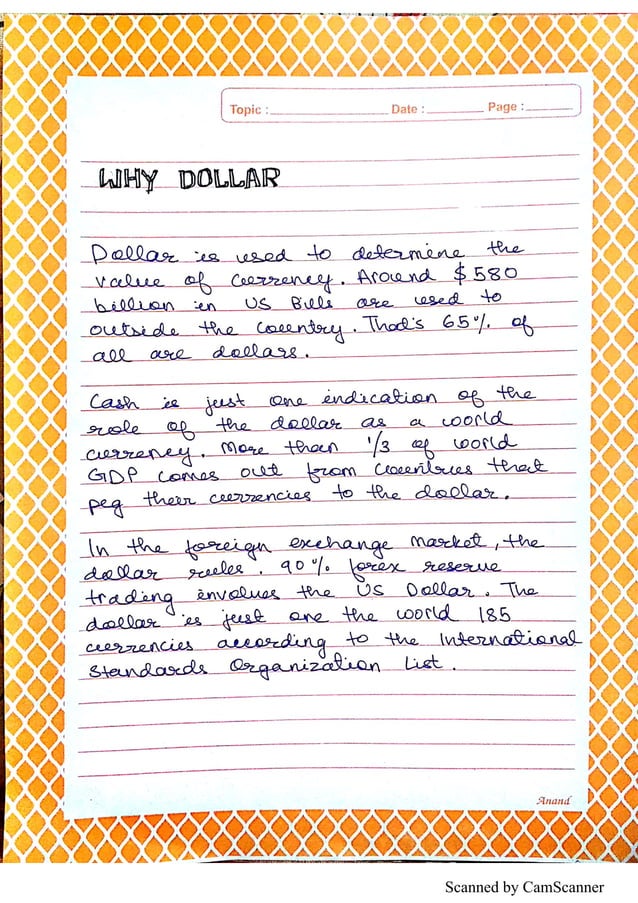 Topic : Date : Page :
WHY DOLLAR
Dollar is used to determine the
value of currency. Around $580
billion in US Bills are used to
outside the country. That's 65% of
all are dollars.
Cash is just one indication of the
role of the dollar as a world
currency. More than 1/3 of world
GDP comes out from countries that
peg their currencies to the dollar.
In the foreign exchange market, the
dollar rules. 90% forex reserve
trading envolues the US Dollar. The
dollar is just one the world 185
currencies according to the International
Standards Organization List.
Anand
Scanned by CamScanner